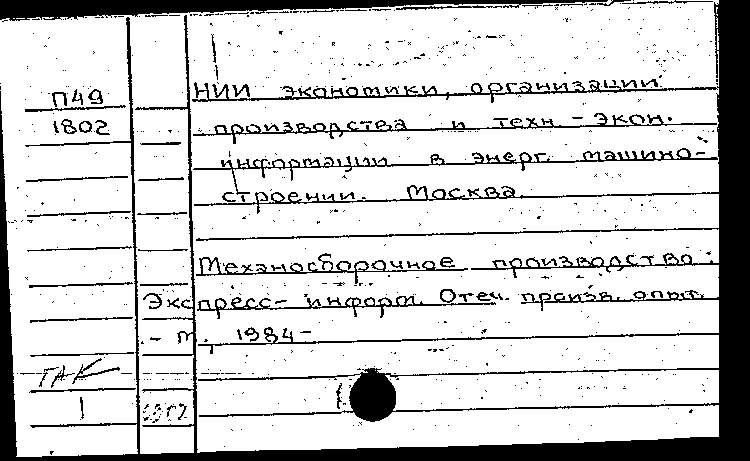 П49
1802
НИИ экономики, организации
производства и техн.-экон.
информации в энерг. машино-
строении. Москва.
Механосборочное производство:
Экспресс-информ. Отеч. произв. опыт.
- м., 1984-
ТАК
1